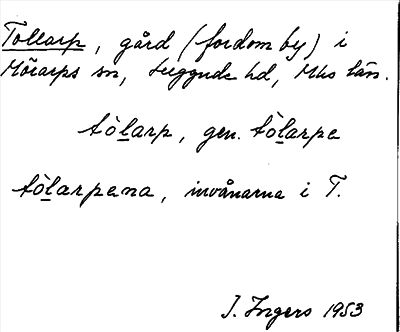 Tollarp, gård (fordom by) i
Mörarps sn, Luggude hd, Mhs län.
tòlarp, gen. tòlarpe
tòlarpena, invånarna i T.
I. Ingers 1953